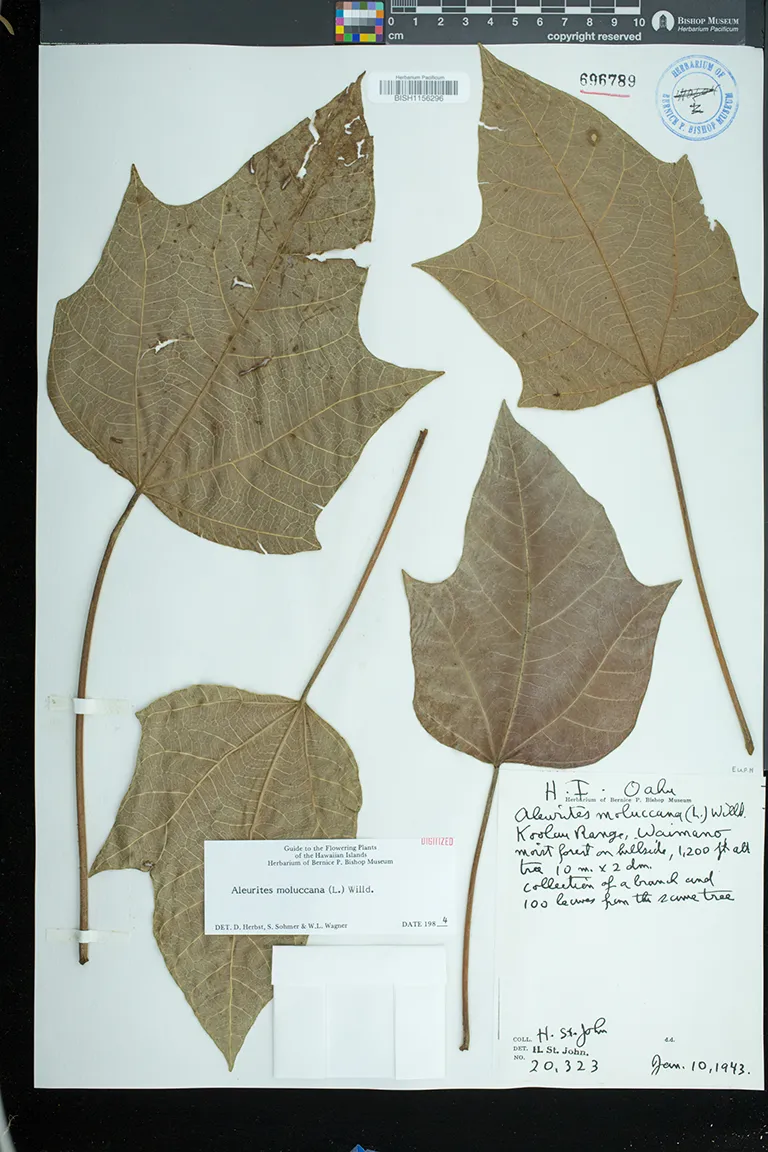 0 1 2 3 4 5 6 7 8 9 10
cm
copyright reserved
BISHOP MUSEUM
Herbarium Pacificum
Herbarium Pacificum
BISH1156296
696789
HERBARIUM OF
BERNICE P. BISHOP MUSEUM
2
EUPH
H. I. Oahu
Herbarium of Bernice P. Bishop Museum
Aleurites moluccana (L.) Willd.
Koolau Range, Waimano,
moist forest on hillside, 1,200 ft alt
tree 10 m. x 2 dm.
collection of a branch and
100 leaves from the same tree
COLL. H. St. John
d.d.
DET. H. St. John.
NO. 20,323
Jan. 10, 1943.
DIGITIZED
Guide to the Flowering Plants
of the Hawaiian Islands
Herbarium of Bernice P. Bishop Museum
Aleurites moluccana (L.) Willd.
DET. D. Herbst, S. Sohmer & W.L. Wagner
DATE 1984